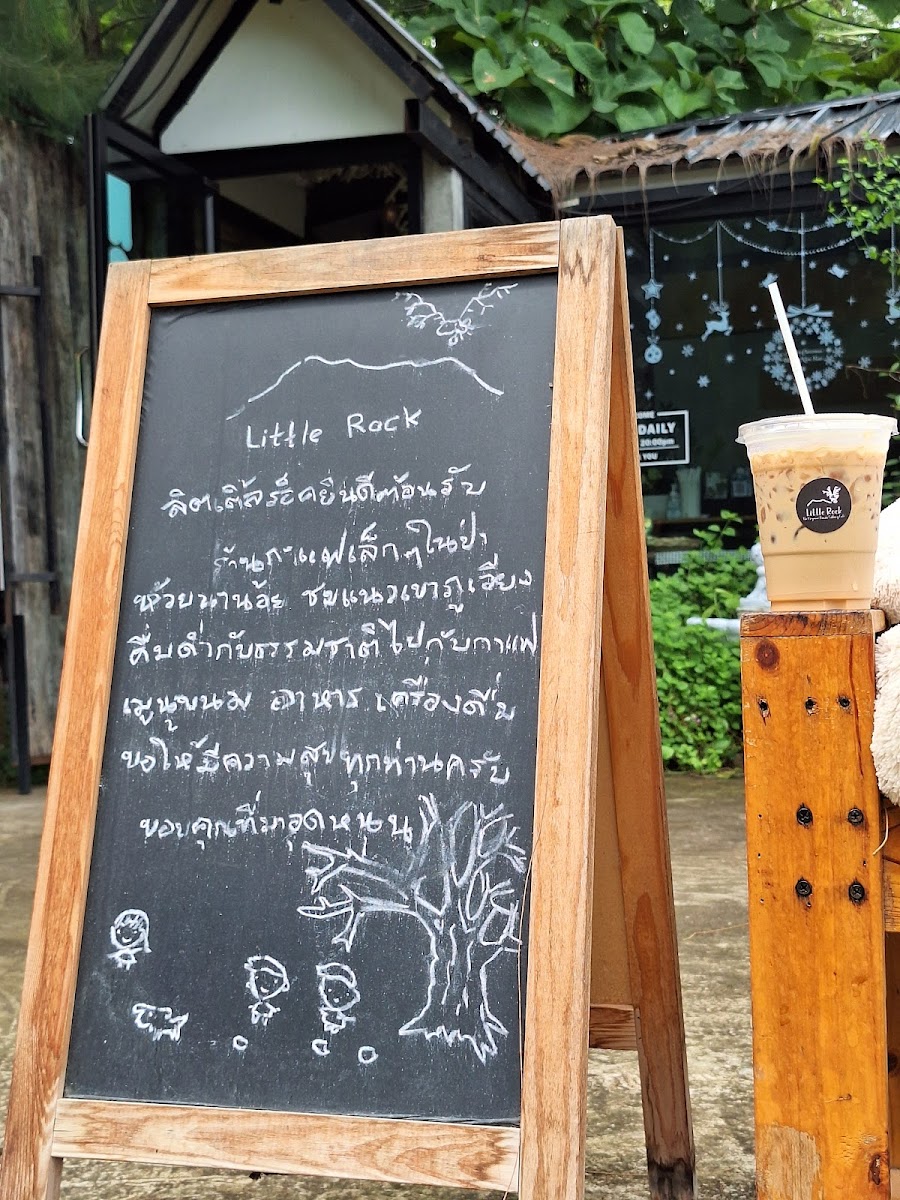 Little Rock
ลิตเติ้ลร็อคยินดีต้อนรับ
ร้านกาแฟเล็กๆในป่า
ห้วยนาน้อย ชมแนวเขาภูเวียง
ดื่มด่ำกับธรรมชาติไปกับกาแฟ
เมนูขนม อาหาร เครื่องดื่ม
ขอให้มีความสุขทุกท่านครับ
ขอบคุณที่มาอุดหนุน
DAILY
20:00pm
YOU
Little Rock